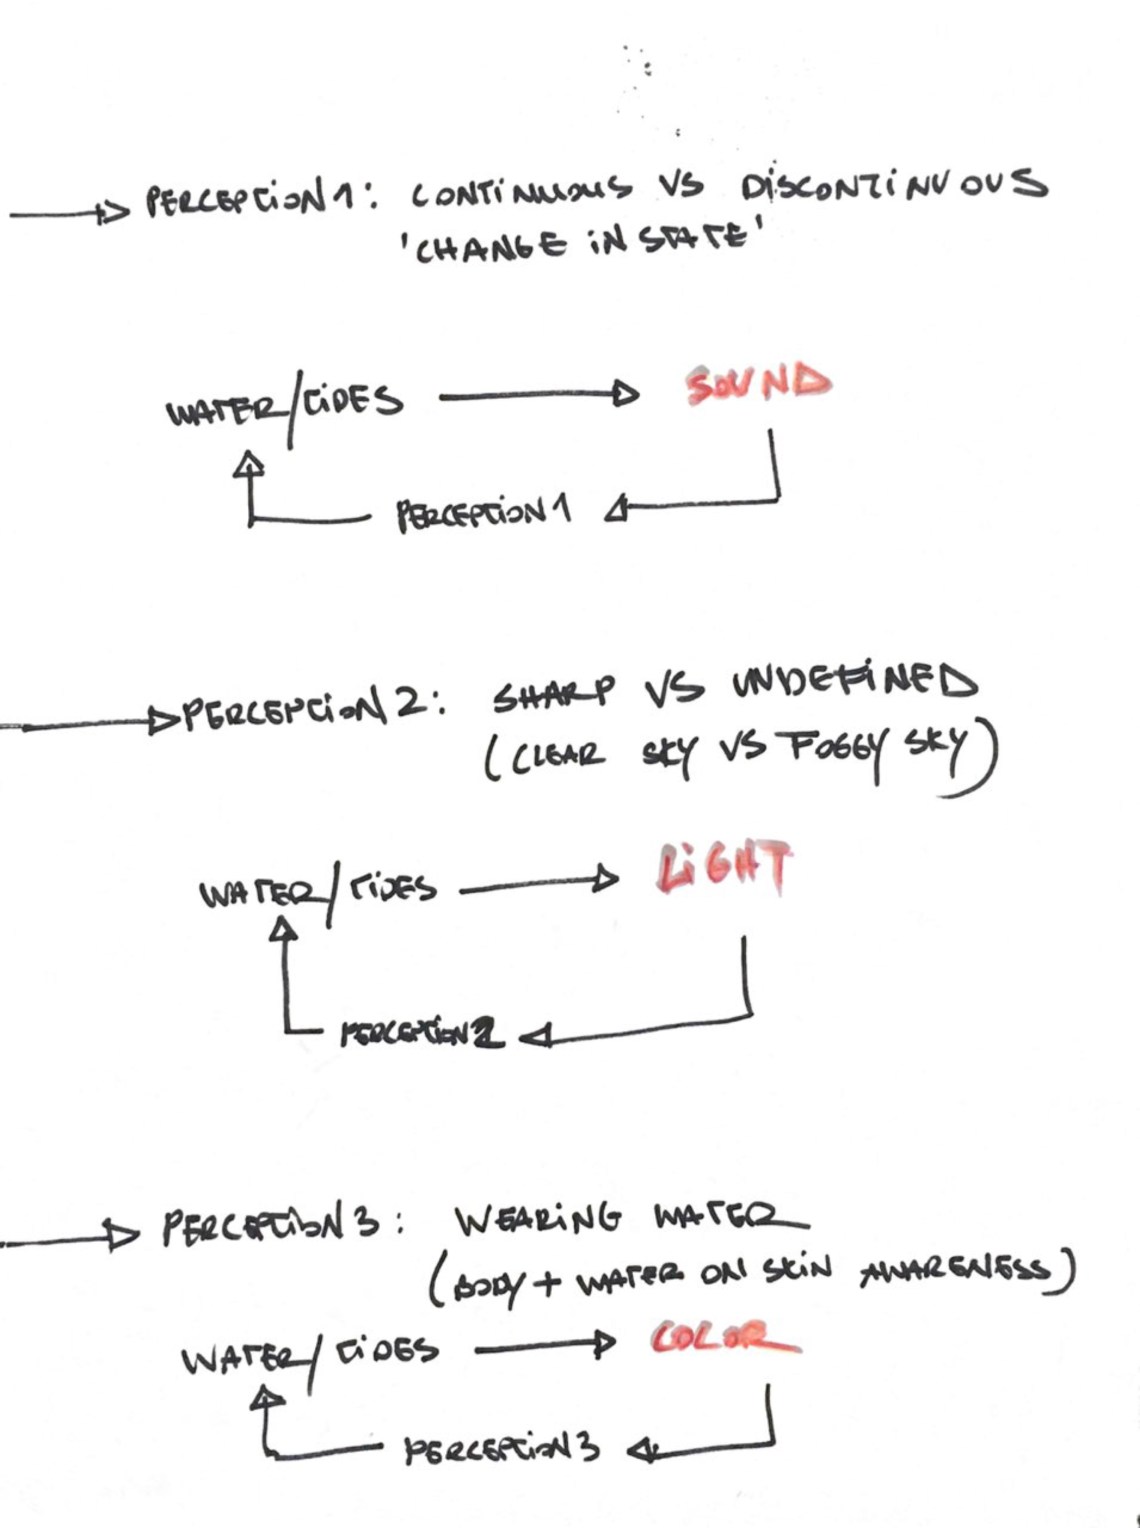 PERCEPTION 1: CONTINUOUS VS DISCONTINUOUS
'CHANGE IN STATE'
WATER/TIDES SOUND
PERCEPTION 1
PERCEPTION 2: SHARP VS UNDEFINED
(CLEAR SKY VS FOGGY SKY)
WATER/TIDES LIGHT
PERCEPTION 2
PERCEPTION 3: WEARING WATER
(BODY + WATER ON SKIN AWARENESS)
WATER/TIDES COLOR
PERCEPTION 3